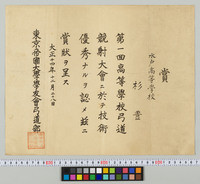 賞
水戸高等学校
杉 豊
第一回高等學校弓道
競射大會ニ於テ技術
優秀ナルヲ認メ茲ニ
賞狀ヲ呈ス
大正十四年十二月二十八日
東京帝國大學學友會弓道部